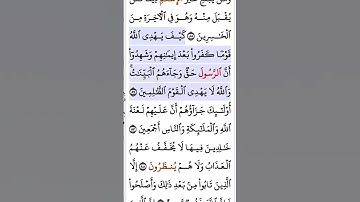 يُقْبَلَ مِنْهُ وَهُوَ فِي ٱلْأَخِرَةِ مِنَ
ٱلْخَٰسِرِينَ ۝ كَيْفَ يَهْدِي ٱللَّهُ
قَوْمًا كَفَرُوا۟ بَعْدَ إِيمَٰنِهِمْ وَشَهِدُوٓا۟
أَنَّ ٱلرَّسُولَ حَقٌّ وَجَآءَهُمُ ٱلْبَيِّنَٰتُ
وَٱللَّهُ لَا يَهْدِي ٱلْقَوْمَ ٱلظَّٰلِمِينَ ۝
أُو۟لَٰٓئِكَ جَزَآؤُهُمْ أَنَّ عَلَيْهِمْ لَعْنَةَ
ٱللَّهِ وَٱلْمَلَٰٓئِكَةِ وَٱلنَّاسِ أَجْمَعِينَ ۝
خَٰلِدِينَ فِيهَا لَا يُخَفَّفُ عَنْهُمُ
ٱلْعَذَابُ وَلَا هُمْ يُنظَرُونَ ۝ إِلَّا
ٱلَّذِينَ تَابُوا۟ مِنۢ بَعْدِ ذَٰلِكَ وَأَصْلَحُوا۟